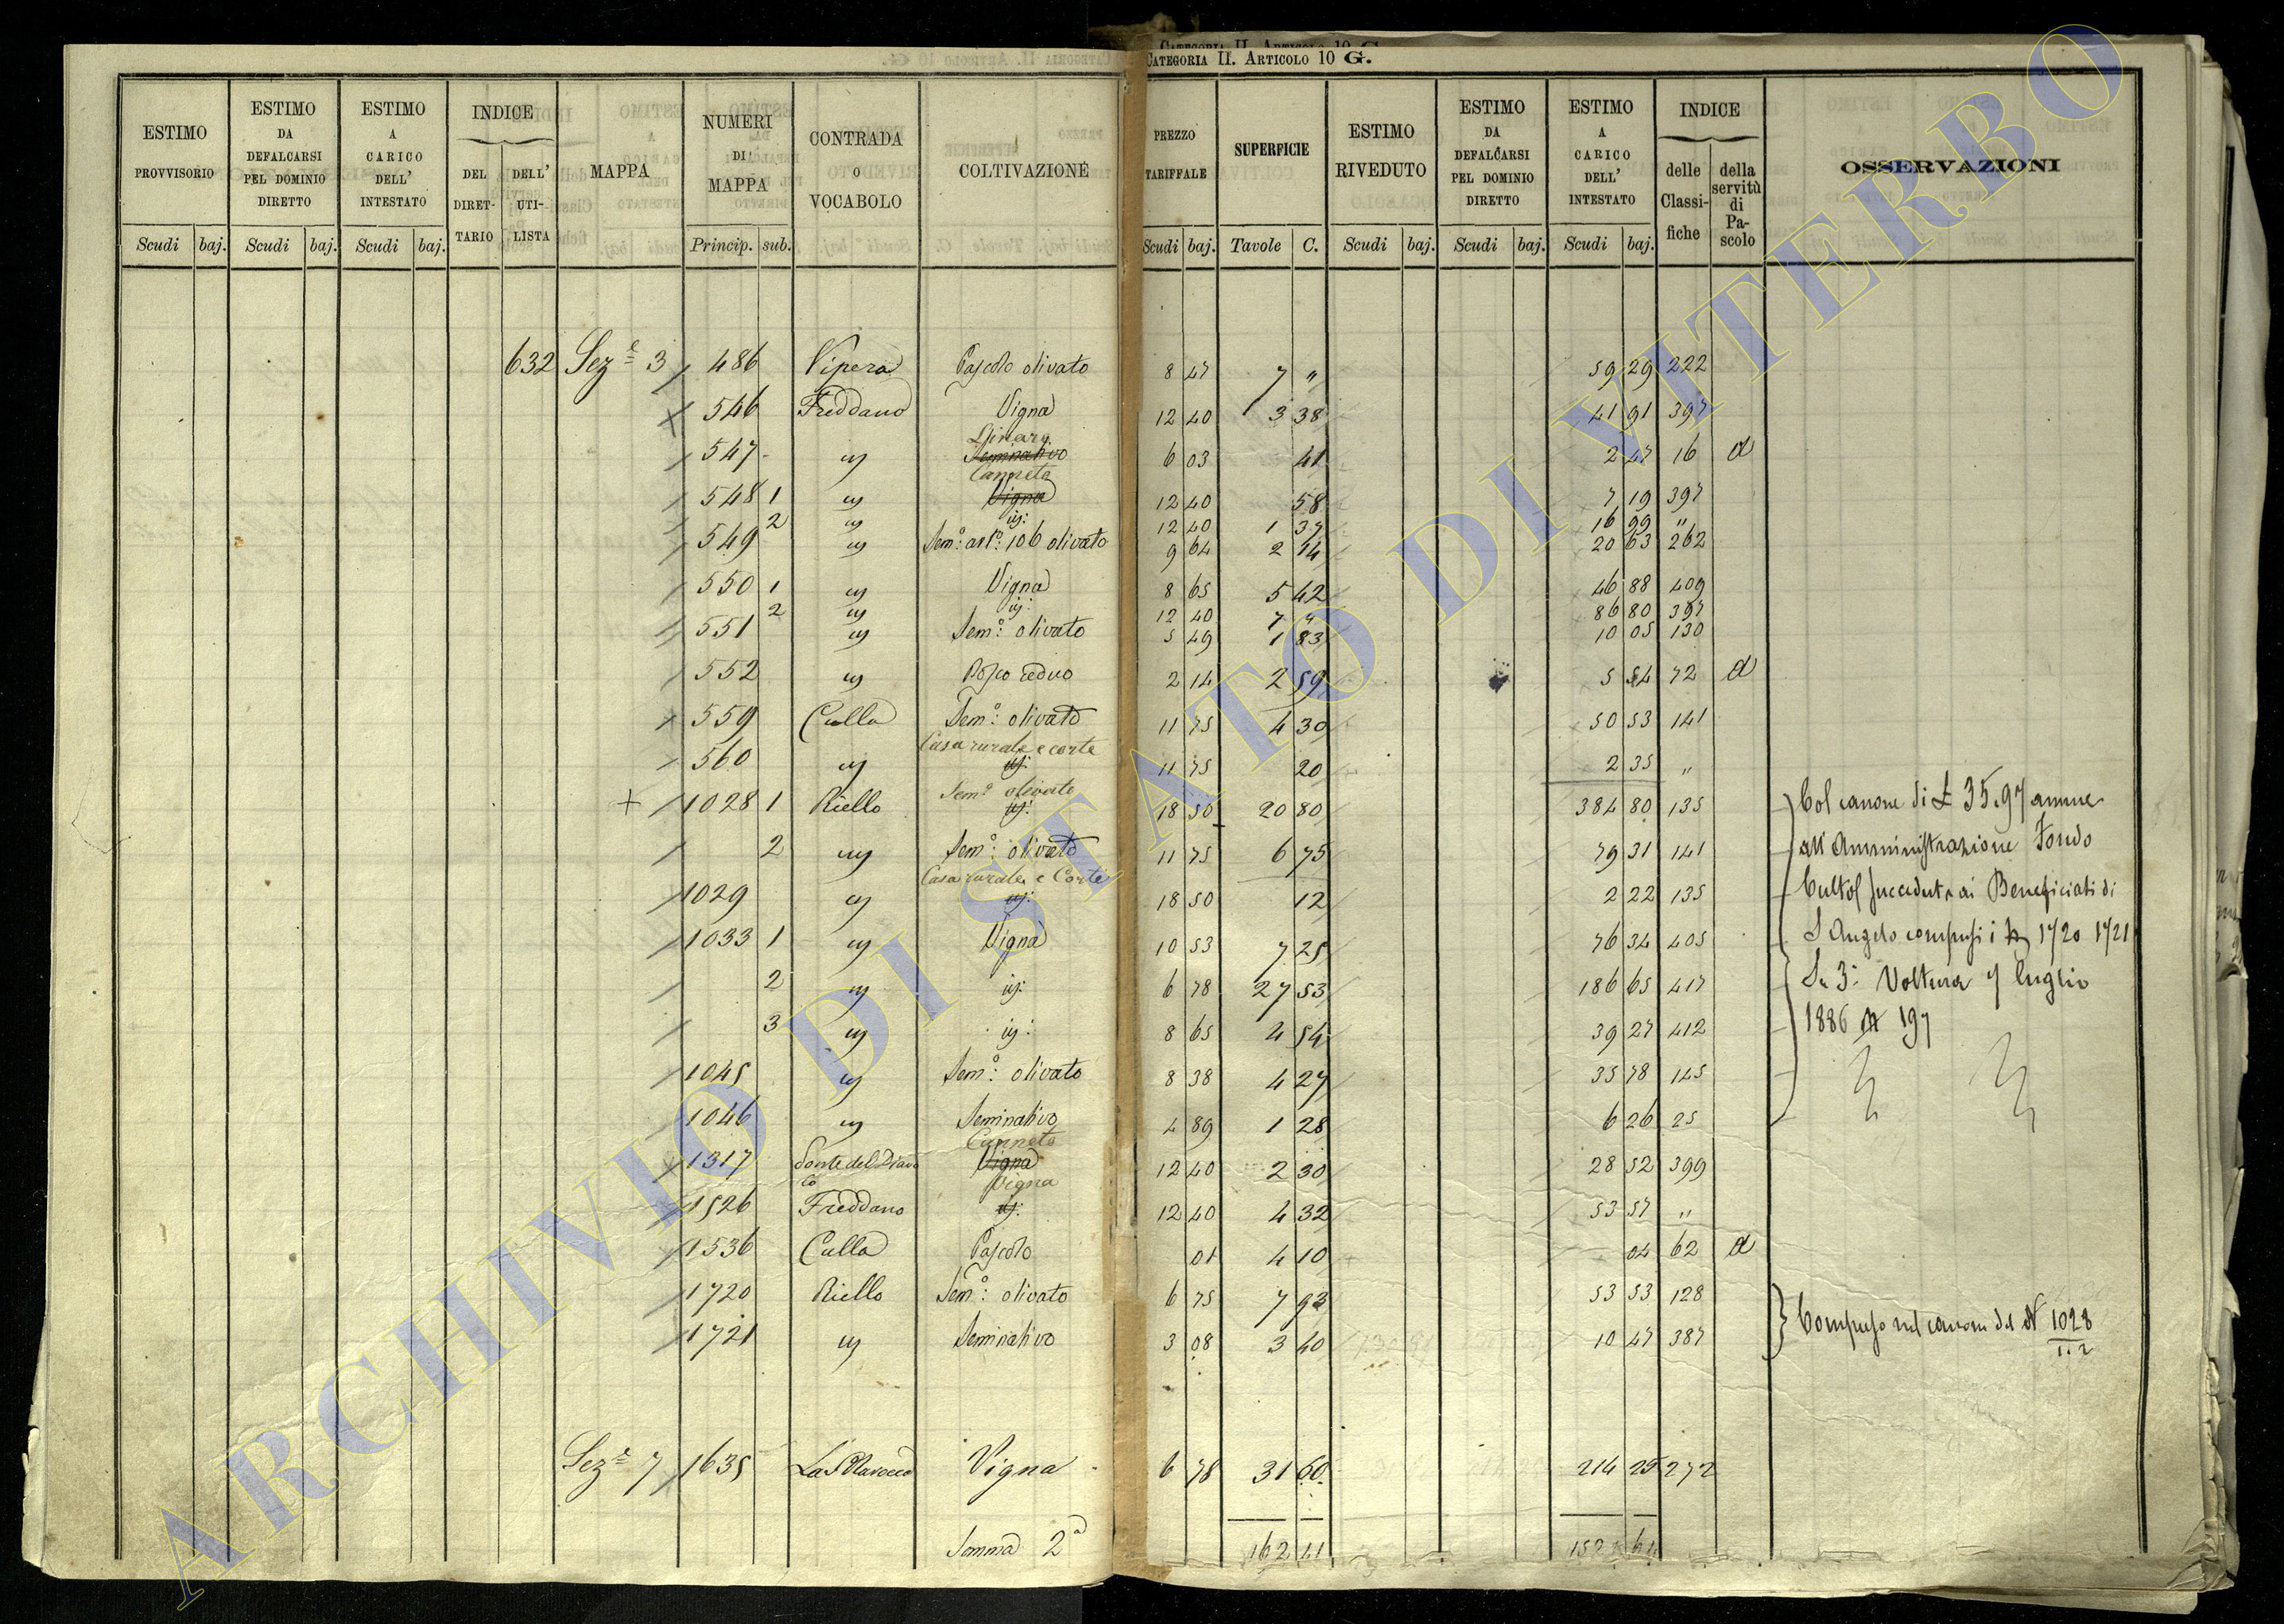 CATEGORIA II. ARTICOLO 10 G.
ESTIMO PROVVISORIO
ESTIMO DA DEFALCARSI PEL DOMINIO DIRETTO
ESTIMO A CARICO DELL' INTESTATO
INDICE
DEL DIRETTARIO
DELL' UTILISTA
MAPPA
NUMERI DI MAPPA
CONTRADA O VOCABOLO
COLTIVAZIONE
PREZZO TARIFFALE
SUPERFICIE
ESTIMO RIVEDUTO
ESTIMO DA DEFALCARSI PEL DOMINIO DIRETTO
ESTIMO A CARICO DELL' INTESTATO
INDICE
delle Classifiche
della servitù di Pascolo
OSSERVAZIONI
Scudi baj. Scudi baj. Scudi baj. Princip. sub. Scudi baj. Tavole C. Scudi baj. Scudi baj. Scudi baj.
632 Sez.e 3 486 Vipera Pascolo olivato 8 47 7 " 59 29 222
546 Freddano Vigna 12 40 3 38 41 91 397
547 Seminativo 6 03 41 2 47 16 a
Canneto
548 1 Vigna 12 40 58 7 19 397
2 12 40 1 37 16 99 "
549 Sem.o art.o 106 olivato 9 64 2 14 20 63 262
550 1 Vigna 8 65 5 42 46 88 409
2 12 40 7 " 86 80 397
551 Sem.o olivato 5 49 1 83 10 05 130
552 Bosco ceduo 2 14 2 59 5 54 72 a
559 Culla Sem.o olivato 11 75 4 30 50 53 141
Casa rurale e corte
560 11 75 20 2 35 "
Sem.o olivato
+ 1028 1 Riello 18 50 20 80 384 80 135
2 Sem.o olivato 11 75 6 75 79 31 141
Casa rurale e Corte
1029 18 50 12 2 22 135
1033 1 Vigna 10 53 7 25 76 34 405
2 6 78 27 53 186 65 417
3 8 65 4 54 39 27 412
1045 Sem.o olivato 8 38 4 27 35 78 145
1046 Seminativo 4 89 1 28 6 26 25
Canneto
1317 Fonte del Diavo Vigna 12 40 2 30 28 52 399
lo Vigna
1526 Freddano 12 40 4 32 53 57 "
1536 Culla Pascolo 01 4 10 04 62 a
1720 Riello Sem.o olivato 6 75 7 93 53 53 128
1721 Seminativo 3 08 3 40 10 47 387
Sez.e 7 1635 Vigna 6 78 31 60 214 25 272
Somma 2a 162 41
Col canone di £ 35.97 annue
all'Amministrazione Fondo
ai Beneficiati di
S Angelo compresi i N 1720 1721
Voltura 9 luglio
1886 N 197
Compreso nel canone del N 1028
1.2
ARCHIVIO DI STATO DI VITERBO